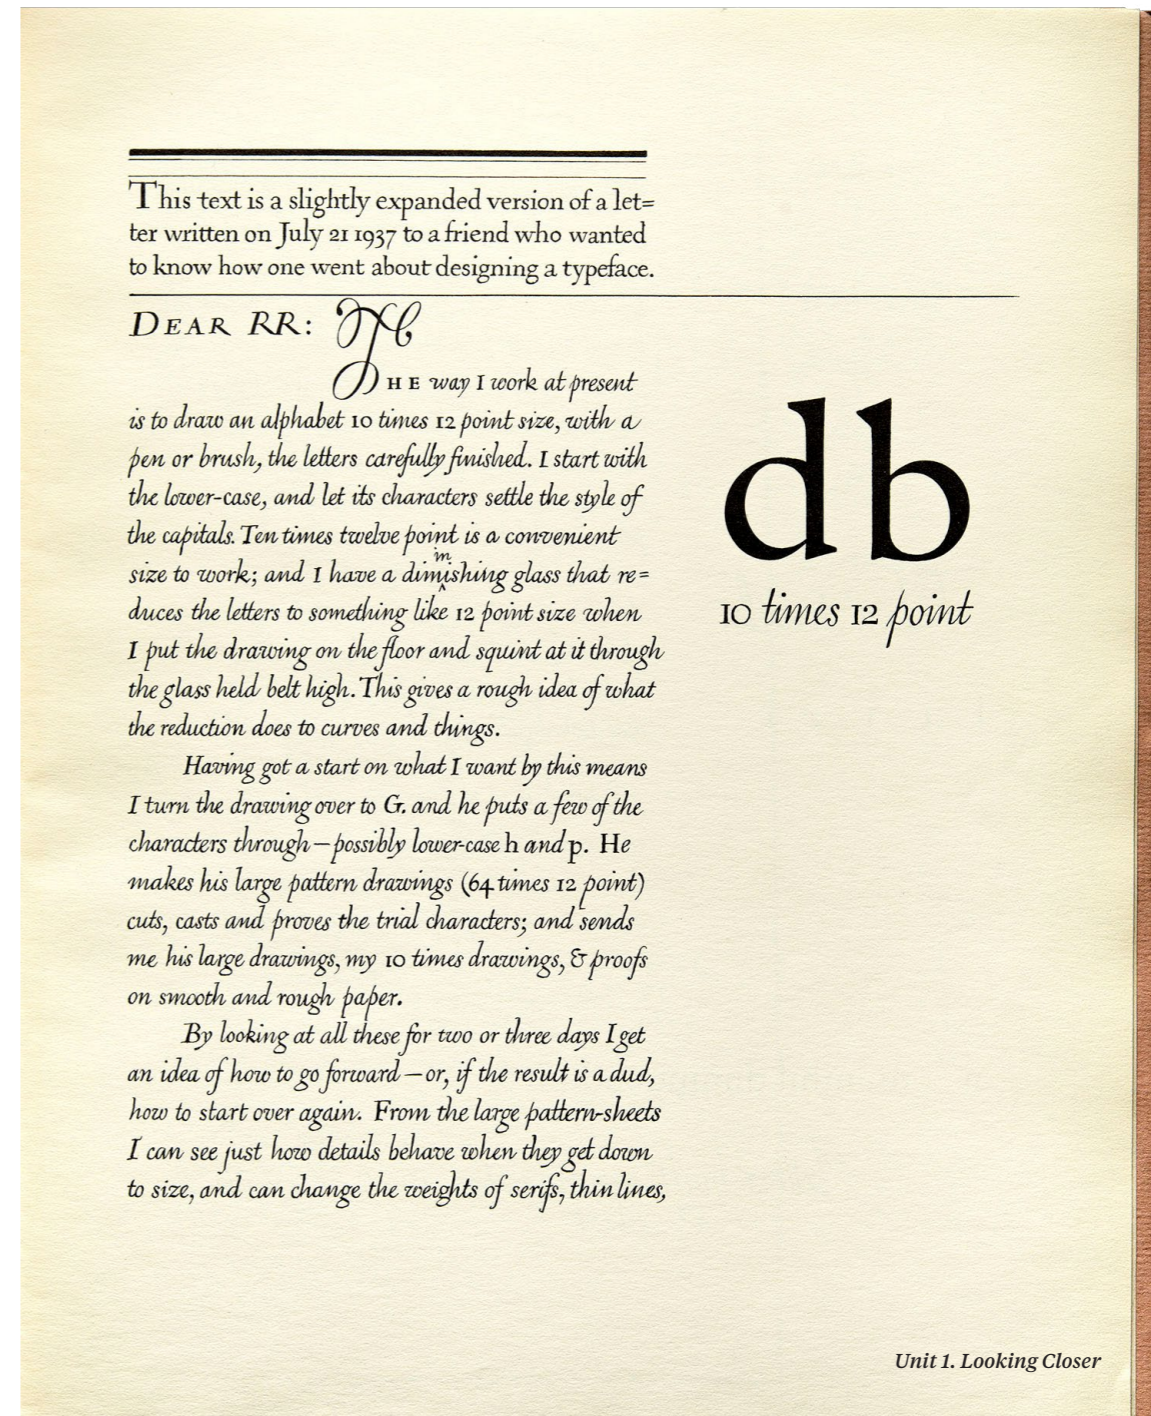 This text is a slightly expanded version of a let=
ter written on July 21 1937 to a friend who wanted
to know how one went about designing a typeface.
DEAR RR:
THE way I work at present
is to draw an alphabet 10 times 12 point size, with a
pen or brush, the letters carefully finished. I start with
the lower-case, and let its characters settle the style of
the capitals. Ten times twelve point is a convenient
in
size to work; and I have a dimishing glass that re=
duces the letters to something like 12 point size when
I put the drawing on the floor and squint at it through
the glass held belt high. This gives a rough idea of what
the reduction does to curves and things.
Having got a start on what I want by this means
I turn the drawing over to G. and he puts a few of the
characters through—possibly lower-case h and p. He
makes his large pattern drawings (64 times 12 point)
cuts, casts and proves the trial characters; and sends
me his large drawings, my 10 times drawings, & proofs
on smooth and rough paper.
By looking at all these for two or three days I get
an idea of how to go forward—or, if the result is a dud,
how to start over again. From the large pattern-sheets
I can see just how details behave when they get down
to size, and can change the weights of serifs, thin lines,
db
10 times 12 point
Unit 1. Looking Closer